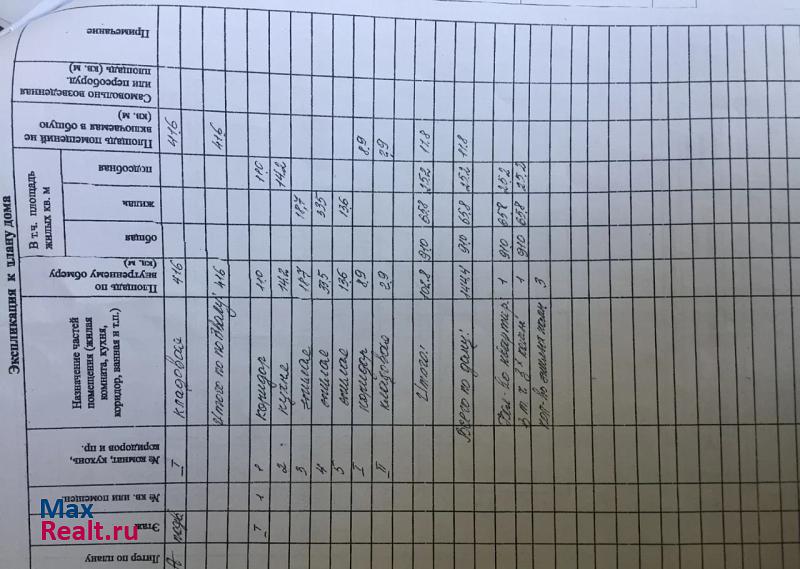 Экспликация к плану дома
Литер по плану
Этаж
№ кв или помещен.
№ комнат, кухонь, коридоров и пр.
Назначение частей помещения (жилая комната, кухня, коридор, ванная и т.п.)
Площадь по внутреннему обмеру (кв. м)
В т.ч. площадь жилых кв. м
общая
жилая
подсобная
Площадь помещений не включаемая в общую (кв. м)
Самовольно возведенная или переоборуд. площадь (кв. м)
Примечание
А подв I кладовая 41.6 41.6
Итого по подвалу: 41.6 41.6
I 1 1 коридор 11.0 11.0
2 кухня 14.2 14.2
3 жилая 18.7 18.7
4 жилая 33.5 33.5
5 жилая 13.6 13.6
I коридор 8.9 8.9
II кладовая 2.9 2.9
Итого: 102.8 91.0 65.8 25.2 11.8
Всего по дому: 144.4 91.0 65.8 25.2 11.8
Кол-во квартир 1 91.0 65.8 25.2
в т.ч. 3х комн 1 91.0 65.8 25.2
кол-во жилых комн 3
Max
Realt.ru